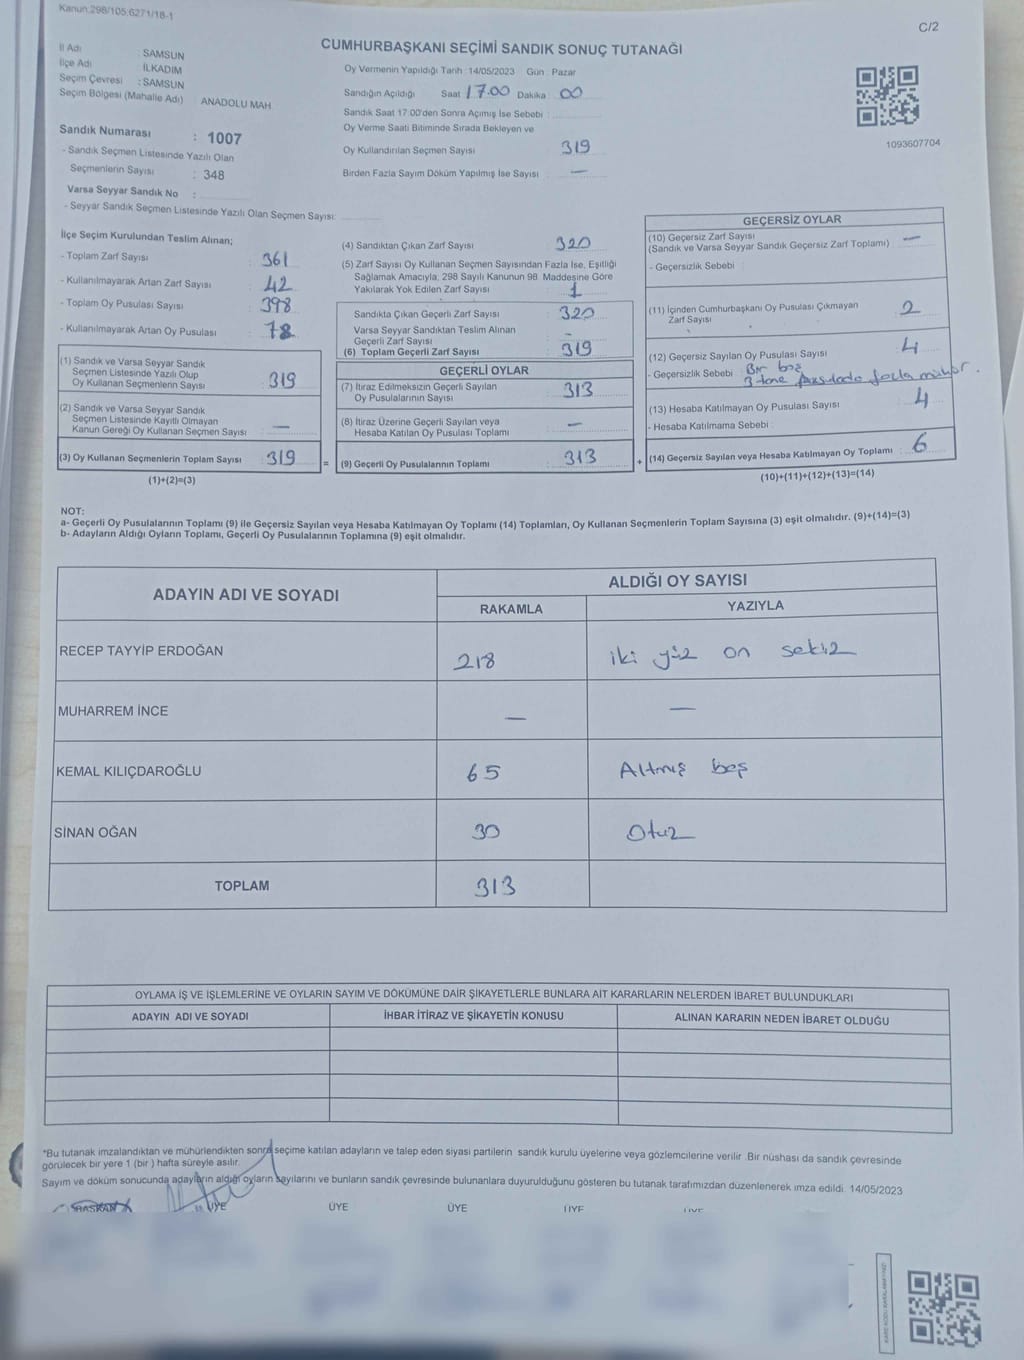 Kanun:298/105;6271/18-1
C/2
CUMHURBAŞKANI SEÇİMİ SANDIK SONUÇ TUTANAĞI
İl Adı : SAMSUN
İlçe Adı : İLKADIM
Seçim Çevresi : SAMSUN
Seçim Bölgesi (Mahalle Adı) ANADOLU MAH
Sandık Numarası : 1007
- Sandık Seçmen Listesinde Yazılı Olan
Seçmenlerin Sayısı : 348
Varsa Seyyar Sandık No :
- Seyyar Sandık Seçmen Listesinde Yazılı Olan Seçmen Sayısı:
Oy Vermenin Yapıldığı Tarih :14/05/2023 Gün : Pazar
Sandığın Açıldığı Saat 17.00 Dakika 00
Sandık Saat 17:00'den Sonra Açımış İse Sebebi :
Oy Verme Saati Bitiminde Sırada Bekleyen ve
Oy Kullandırılan Seçmen Sayısı : 319
Birden Fazla Sayım Döküm Yapılmış İse Sayısı : —
1093607704
İlçe Seçim Kurulundan Teslim Alınan;
- Toplam Zarf Sayısı : 361
- Kullanılmayarak Artan Zarf Sayısı : 42
- Toplam Oy Pusulası Sayısı : 398
- Kullanılmayarak Artan Oy Pusulası : 78
(1) Sandık ve Varsa Seyyar Sandık
Seçmen Listesinde Yazılı Olup
Oy Kullanan Seçmenlerin Sayısı : 319
(2) Sandık ve Varsa Seyyar Sandık
Seçmen Listesinde Kayıtlı Olmayan
Kanun Gereği Oy Kullanan Seçmen Sayısı : —
(3) Oy Kullanan Seçmenlerin Toplam Sayısı : 319
(1)+(2)=(3)
(4) Sandıktan Çıkan Zarf Sayısı : 320
(5) Zarf Sayısı Oy Kullanan Seçmen Sayısından Fazla İse, Eşitliği
Sağlamak Amacıyla, 298 Sayılı Kanunun 98. Maddesine Göre
Yakılarak Yok Edilen Zarf Sayısı : 1
Sandıkta Çıkan Geçerli Zarf Sayısı : 320
Varsa Seyyar Sandıktan Teslim Alınan
Geçerli Zarf Sayısı : —
(6) Toplam Geçerli Zarf Sayısı : 319
GEÇERLİ OYLAR
(7) İtiraz Edilmeksizin Geçerli Sayılan
Oy Pusulalarının Sayısı : 313
(8) İtiraz Üzerine Geçerli Sayılan veya
Hesaba Katılan Oy Pusulası Toplamı : —
= (9) Geçerli Oy Pusulalarının Toplamı : 313
GEÇERSİZ OYLAR
(10) Geçersiz Zarf Sayısı —
(Sandık ve Varsa Seyyar Sandık Geçersiz Zarf Toplamı) :
- Geçersizlik Sebebi :
(11) İçinden Cumhurbaşkanı Oy Pusulası Çıkmayan
Zarf Sayısı : 2
(12) Geçersiz Sayılan Oy Pusulası Sayısı : 4
- Geçersizlik Sebebi : Bir boş
3 tane pusulada fazla mühür.
(13) Hesaba Katılmayan Oy Pusulası Sayısı : 4
- Hesaba Katılmama Sebebi :
+ (14) Geçersiz Sayılan veya Hesaba Katılmayan Oy Toplamı : 6
(10)+(11)+(12)+(13)=(14)
NOT:
a- Geçerli Oy Pusulalarının Toplamı (9) ile Geçersiz Sayılan veya Hesaba Katılmayan Oy Toplamı (14) Toplamları, Oy Kullanan Seçmenlerin Toplam Sayısına (3) eşit olmalıdır. (9)+(14)=(3)
b- Adayların Aldığı Oyların Toplamı, Geçerli Oy Pusulalarının Toplamına (9) eşit olmalıdır.
ADAYIN ADI VE SOYADI
ALDIĞI OY SAYISI
RAKAMLA YAZIYLA
RECEP TAYYİP ERDOĞAN 218 iki yüz on sekiz
MUHARREM İNCE — —
KEMAL KILIÇDAROĞLU 65 Altmış beş
SİNAN OĞAN 30 Otuz
TOPLAM 313
OYLAMA İŞ VE İŞLEMLERİNE VE OYLARIN SAYIM VE DÖKÜMÜNE DAİR ŞİKAYETLERLE BUNLARA AİT KARARLARIN NELERDEN İBARET BULUNDUKLARI
ADAYIN ADI VE SOYADI İHBAR İTİRAZ VE ŞİKAYETİN KONUSU ALINAN KARARIN NEDEN İBARET OLDUĞU
*Bu tutanak imzalandıktan ve mühürlendikten sonra seçime katılan adayların ve talep eden siyasi partilerin sandık kurulu üyelerine veya gözlemcilerine verilir .Bir nüshası da sandık çevresinde
görülecek bir yere 1 (bir ) hafta süreyle asılır.
Sayım ve döküm sonucunda adayların aldığı oyların sayılarını ve bunların sandık çevresinde bulunanlara duyurulduğunu gösteren bu tutanak tarafımızdan düzenlenerek imza edildi. 14/05/2023
BAŞKAN ÜYE ÜYE ÜYE ÜYE ÜYE